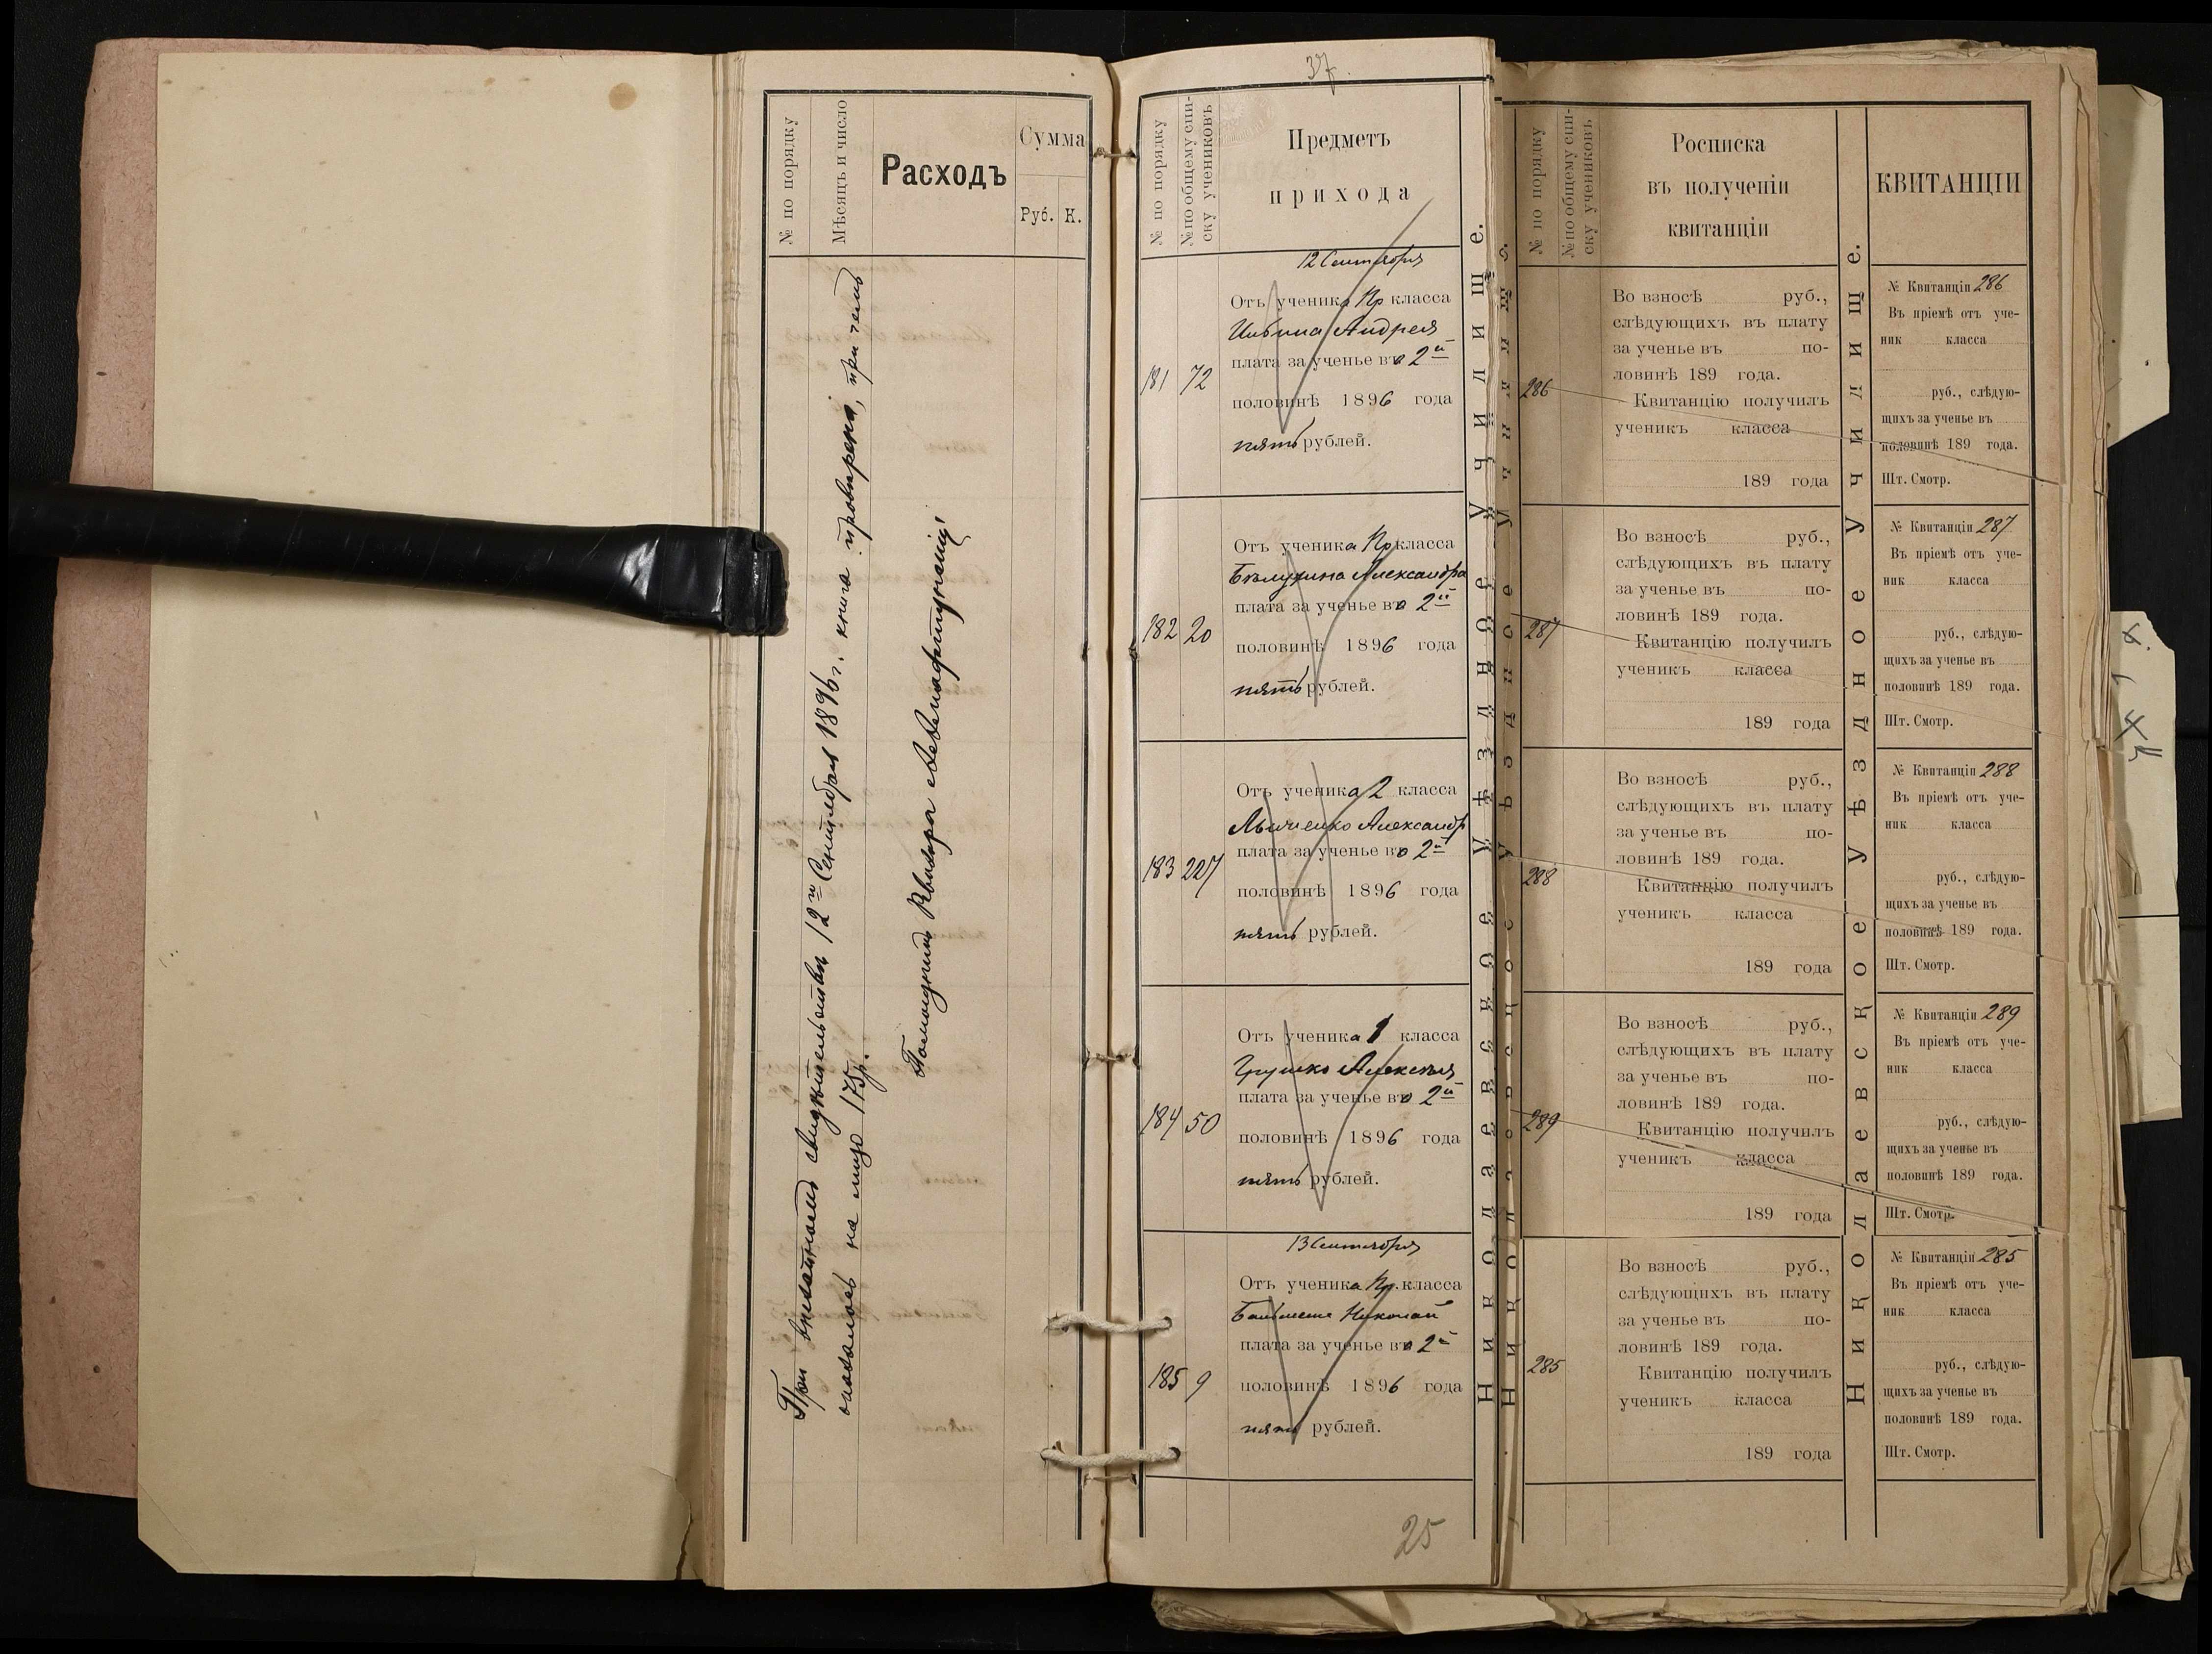 № по порядку
Мѣсяцъ и число
Расходъ
Сумма
Руб. К.
При внезапномъ свидѣтельствѣ 12го Сентября 1896 г. книга провѣрена, при чемъ
оказалось на лицо 175 р.
37
№ по порядку
№ по общему спи-
ску учениковъ
Предметъ
прихода
12 Сентября
181 72
Отъ ученика Пр класса
Ильина Андрея
плата за ученье во 2й
половинѣ 1896 года
пять рублей.
182 20
Отъ ученика Пр класса
Александра
плата за ученье во 2й
половинѣ 1896 года
пять рублей.
183 227
Отъ ученика 2 класса
Александр
плата за ученье во 2й
половинѣ 1896 года
пять рублей.
184 50
Отъ ученика 1 класса
Алексѣя
плата за ученье во 2й
половинѣ 1896 года
пять рублей.
13 Сентября
185 9
Отъ ученика Пр. класса
Николай
плата за ученье во 2й
половинѣ 1896 года
пять рублей.
25
Николаевское Уѣздное Училище.
Николаевское Уѣздное Училище.
№ по порядку
№ по общему спи-
ску учениковъ
Росписка
въ полученіи
квитанціи
КВИТАНЦІИ
286
Во взносѣ руб.,
слѣдующихъ въ плату
за ученье въ по-
ловинѣ 189 года.
Квитанцію получилъ
ученикъ класса
189 года
№ Квитанціи 286
Въ пріемѣ отъ уче-
ник класса
руб., слѣдую-
щихъ за ученье въ
половинѣ 189 года.
Шт. Смотр.
287
Во взносѣ руб.,
слѣдующихъ въ плату
за ученье въ по-
ловинѣ 189 года.
Квитанцію получилъ
ученикъ класса
189 года
№ Квитанціи 287
Въ пріемѣ отъ уче-
ник класса
руб., слѣдую-
щихъ за ученье въ
половинѣ 189 года.
Шт. Смотр.
288
Во взносѣ руб.,
слѣдующихъ въ плату
за ученье въ по-
ловинѣ 189 года.
Квитанцію получилъ
ученикъ класса
189 года
№ Квитанціи 288
Въ пріемѣ отъ уче-
ник класса
руб., слѣдую-
щихъ за ученье въ
половинѣ 189 года.
Шт. Смотр.
289
Во взносѣ руб.,
слѣдующихъ въ плату
за ученье въ по-
ловинѣ 189 года.
Квитанцію получилъ
ученикъ класса
189 года
№ Квитанціи 289
Въ пріемѣ отъ уче-
ник класса
руб., слѣдую-
щихъ за ученье въ
половинѣ 189 года.
Шт. Смотр.
285
Во взносѣ руб.,
слѣдующихъ въ плату
за ученье въ по-
ловинѣ 189 года.
Квитанцію получилъ
ученикъ класса
189 года
№ Квитанціи 285
Въ пріемѣ отъ уче-
ник класса
руб., слѣдую-
щихъ за ученье въ
половинѣ 189 года.
Шт. Смотр.
Николаевское Уѣздное Училище.